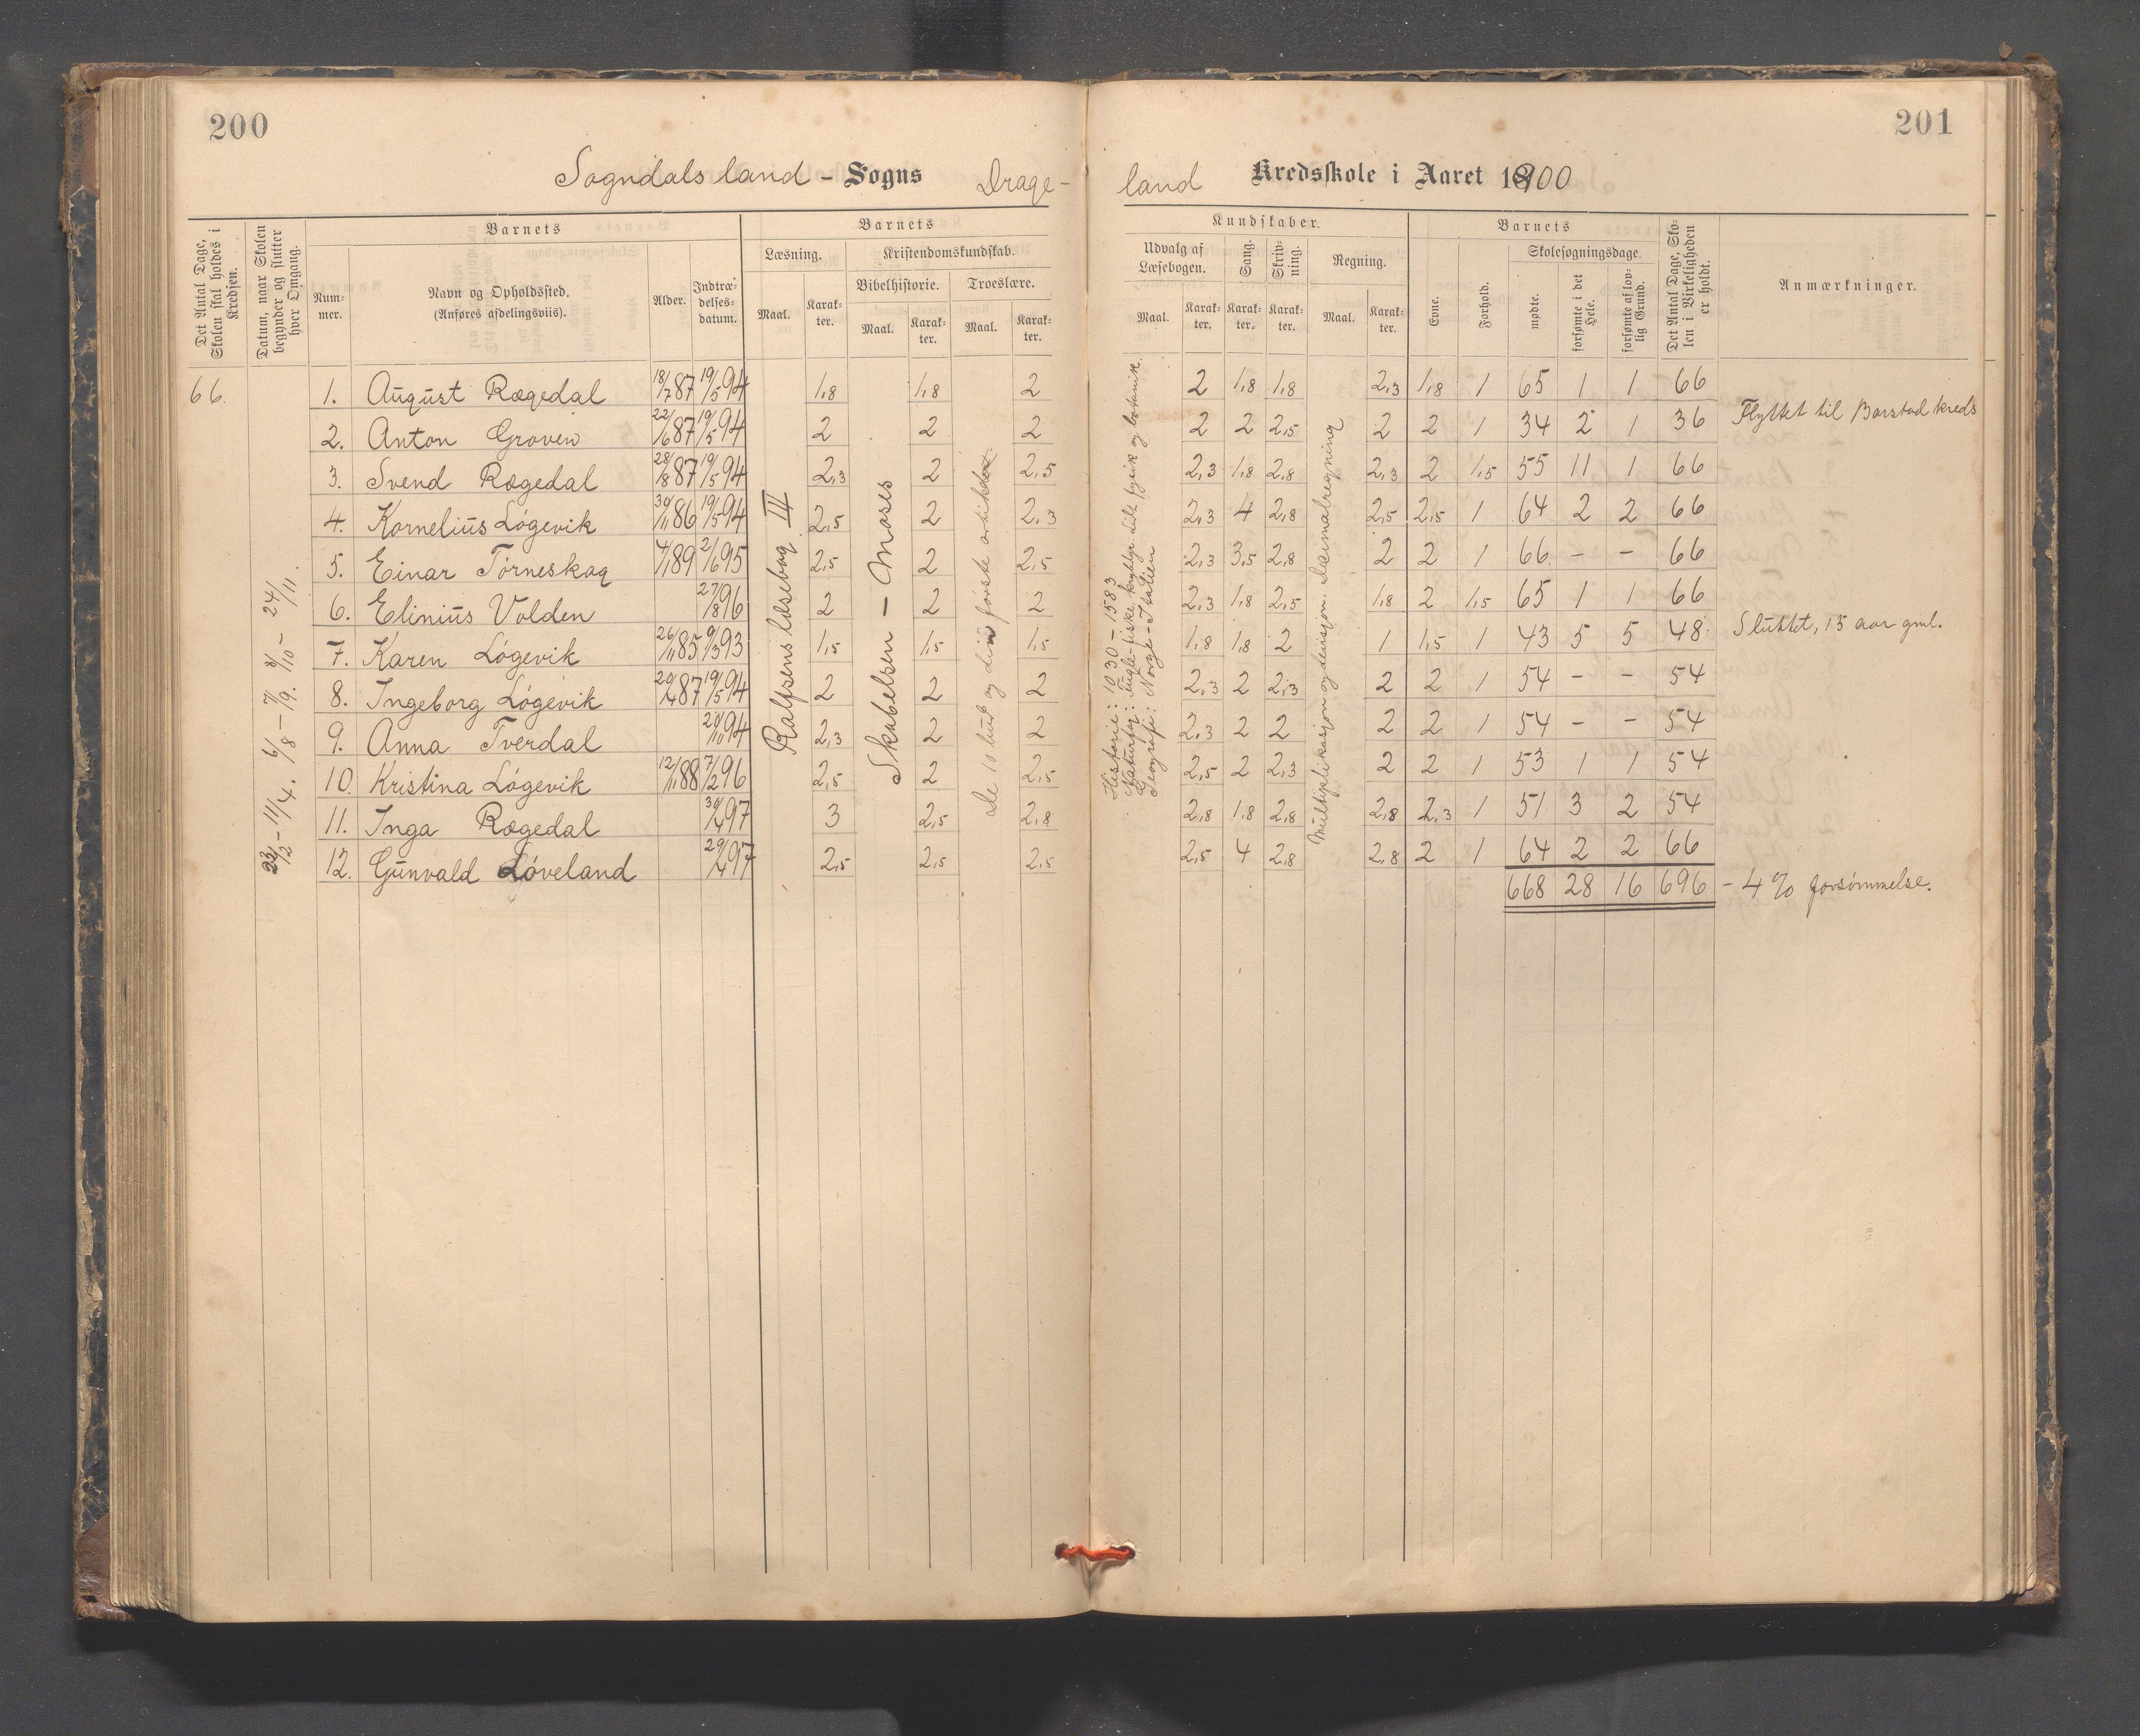 200
201
Sogndals land - Sogns Drage-
land Kredsskole i Aaret 1900
Det Antal Dage, Skolen skal holdes i Kredsen.
Datum, naar Skolen begynder og slutter hver Omgang.
Barnets
Num-mer.
Navn og Opholdssted. (Anføres afdelingsviis).
Alder.
Indtræ-delses-datum.
Barnets
Læsning.
Maal.
Karak-ter.
Kristendomskundskab.
Bibelhistorie.
Maal.
Karak-ter.
Troeslære.
Maal.
Karak-ter.
Kundskaber.
Udvalg af Læsebogen.
Maal.
Karak-ter.
Sang.
Karak-ter.
Skriv-ning.
Karak-ter.
Regning.
Maal.
Karak-ter.
Barnets
Evne.
Forhold.
Skolesøgningsdage.
mødte.
forsømte i det Hele.
forsømte af lov-lig Grund.
Det Antal Dage, Sko-len i Virkeligheden er holdt.
Anmærkninger.
66.
23/2 - 11/4. 6/8 - 7/9. 8/10 - 24/11.
Ralfsens læsebog III
Skabelsen - Moses
De 10 bud og din første artikel
Historie: 1030-1583
Naturfag: Fugle-fiske
Geografi: Norge-Italien
Multiplikasjon og devisjon. Decimalregning
1. August Rægedal 18/7 87 19/5 94 1,8 1,8 2 2 1,8 1,8 2,3 1,8 1 65 1 1 66
2. Anton Groven 22/6 87 19/5 94 2 2 2 2 2 2,5 2 2 1 34 2 1 36 Flyttet til Barstad kreds
3. Svend Rægedal 28/8 87 19/5 94 2,3 2 2,5 2,3 1,8 2,8 2,3 2 1,5 55 11 1 66
4. Kornelius Lógevik 30/11 86 19/5 94 2,5 2 2,3 2,3 4 2,8 2,5 2,5 1 64 2 2 66
5. Einar Tórneskog 4/1 89 2/6 95 2,5 2 2,5 2,3 3,5 2,8 2 2 1 66 - - 66
6. Elinius Volden 27/8 96 2 2 2 2,3 1,8 2,5 1,8 2 1,5 65 1 1 66
7. Karen Lógevik 26/11 85 9/3 93 1,5 1,5 1,5 1,8 1,8 2 1 1,5 1 43 5 5 48 Sluttet, 15 aar gml.
8. Ingeborg Lógevik 20/4 87 19/5 94 2 2 2 2,3 2 2,3 2 2 1 54 - - 54
9. Anna Tverdal 20/10 94 2,3 2 2 2,3 2 2 2 2 1 54 - - 54
10. Kristina Lógevik 12/11 88 7/2 96 2,5 2 2,5 2,5 2 2,3 2 2 1 53 1 1 54
11. Inga Rægedal 30/4 97 3 2,5 2,8 2,8 1,8 2,8 2,8 2,3 1 51 3 2 54
12. Gunvald Lóveland 29/4 97 2,5 2,5 2,5 2,5 4 2,8 2,8 2 1 64 2 2 66
668 28 16 696 - 4% forsómmelse.